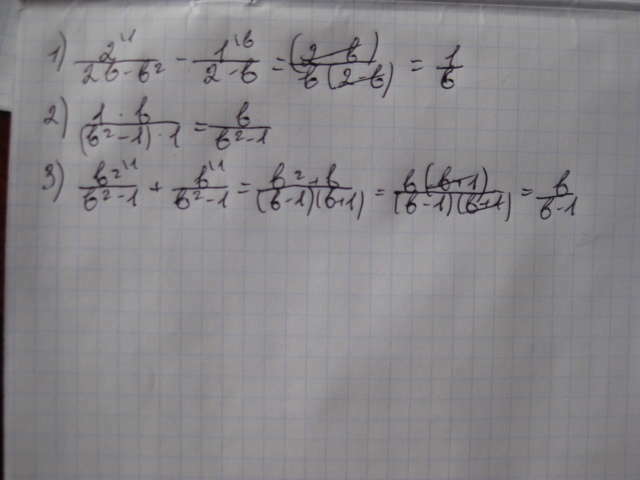 1) 2^{\1}/(2b-b²) - 1^{\b}/(2-b) = (2-b)/(b(2-b)) = 1/b
2) (1·b)/((b²-1)·1) = b/(b²-1)
3) b²^{\1}/(b²-1) + b^{\1}/(b²-1) = (b²+b)/((b-1)(b+1)) = b(b+1)/((b-1)(b+1)) = b/(b-1)